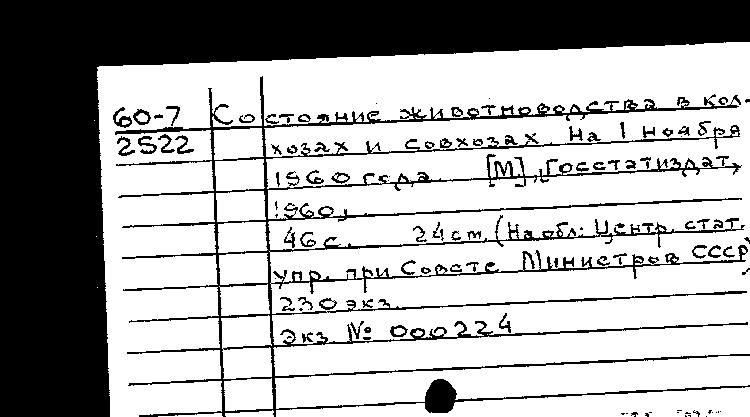 60-7 Состояние животноводства в кол-
2522 хозах и совхозах. На 1 ноября
1960 года. [М], Госстатиздат,
1960,
46 с. 24 cm. (На обл: Центр. стат.
упр. при Совете Министров СССР)
230 экз.
Экз № 000224